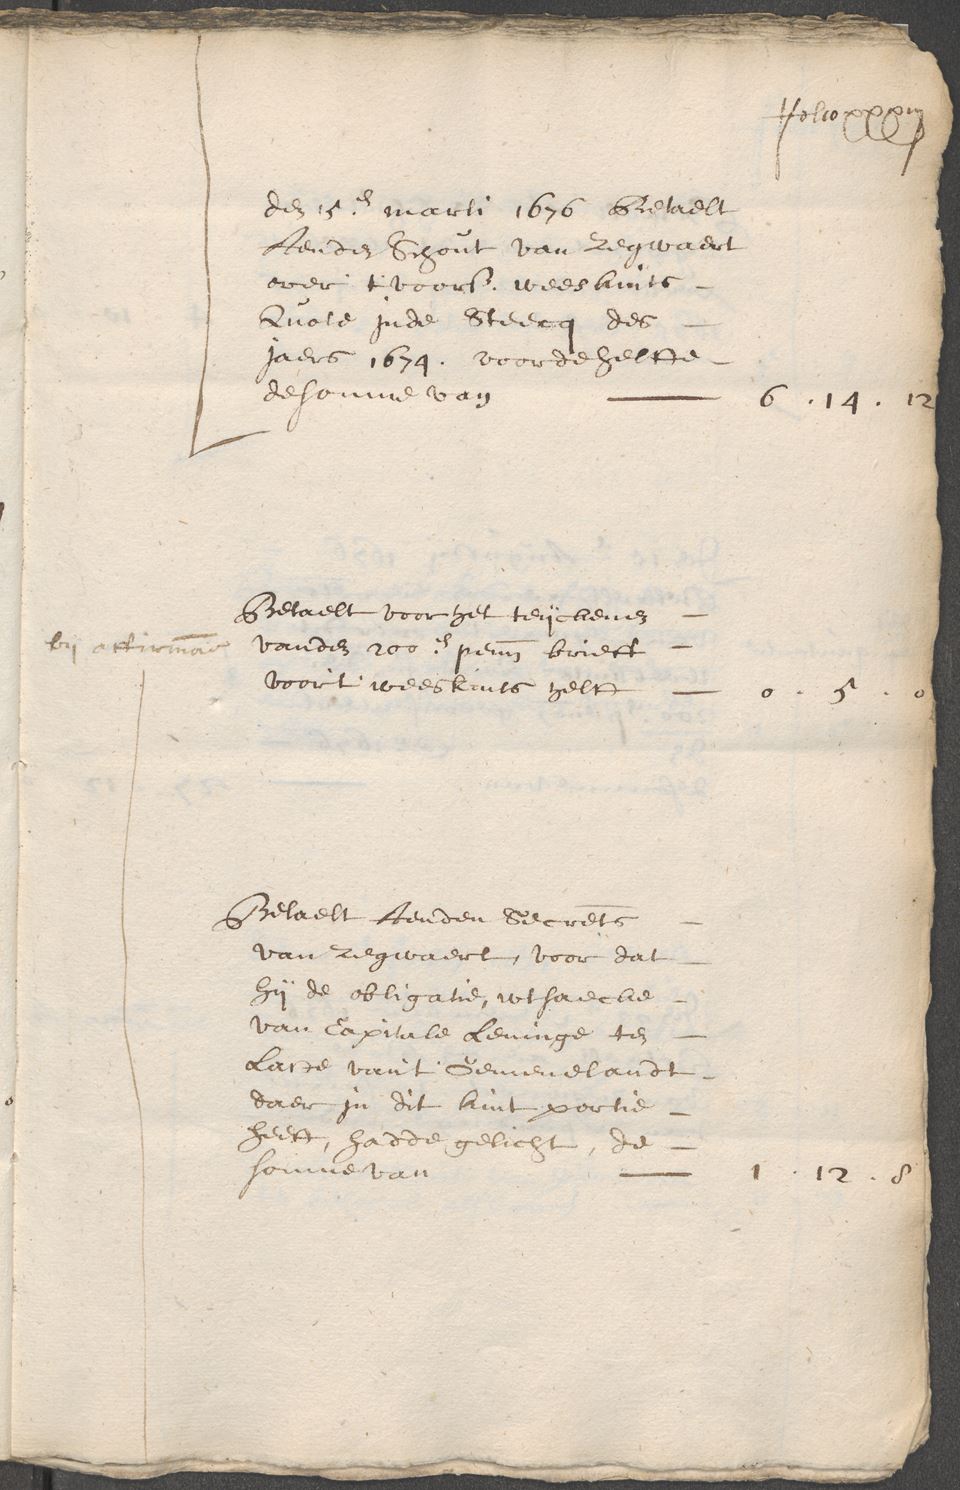 ffolio xxxiij
den 15.e marti 1676 Betaelt
Aenden Schout van Zegwaert
over t voors. weeskints -
Quote inde Steecq des -
jaers 1674. voor de helffte -
de somme van — 6 . 14 . 12
Betaelt voor het teijckenen -
by affirmãe vanden 200.e penn brieff -
voor t weeskints helft — 0 . 5 . 0
Betaelt Aenden Secrets -
van Zegwaert, voor dat -
hij de obligatie, wtsaecke -
van Capitale Leninge ten -
Laste vant Gemenelandt -
daer in dit kint portie -
heeft, hadde gelicht, de -
somme van — 1 . 12 . 8